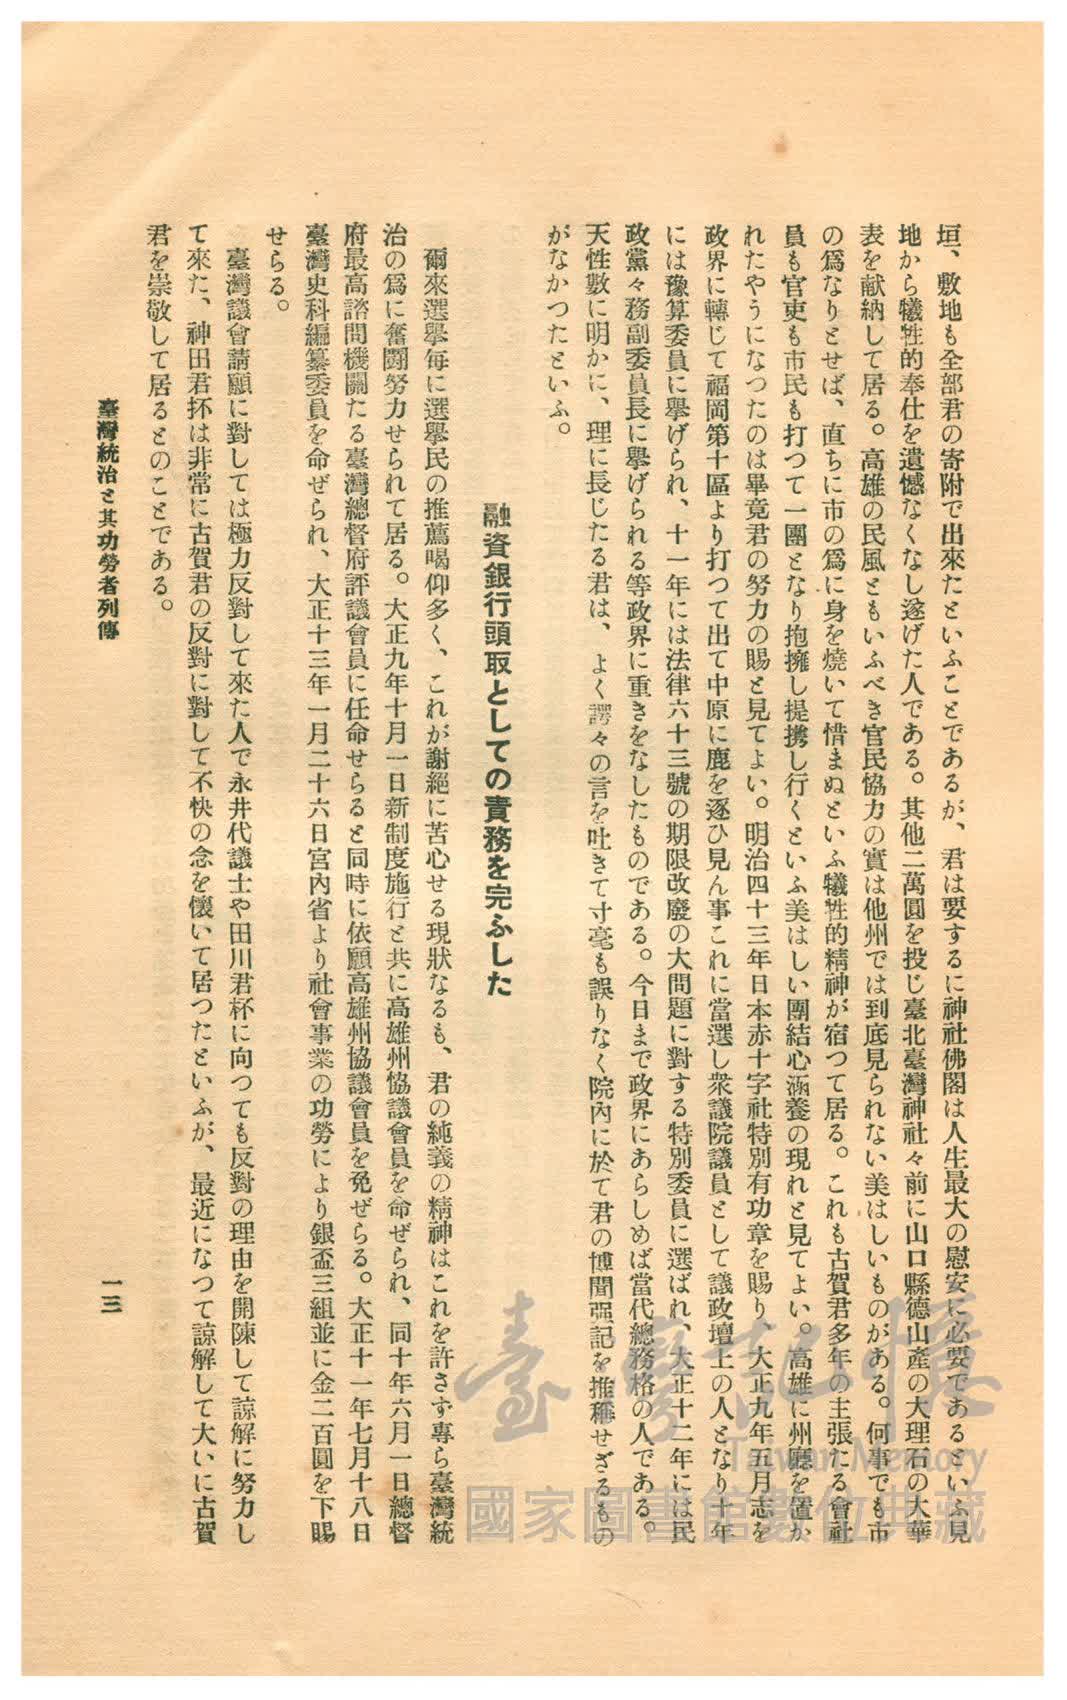 垣、敷地も全部君の寄附で出來たといふことであるが、君は要するに神社佛閣は人生最大の慰安に必要であるといふ見
地から犠牲的奉仕を遺憾なくなし遂げた人である。其他二萬圓を投じ臺北臺灣神社々前に山口縣德山產の大理石の大華
表を献納して居る。高雄の民風ともいふべき官民協力の實は他州では到底見られない美はしいものがある。何事でも市
の爲なりとせば、直ちに市の爲に身を燒いて惜まぬといふ犠牲的精神が宿つて居る。これも古賀君多年の主張たる會社
員も官吏も市民も打つて一團となり抱擁し提携し行くといふ美はしい團結心涵養の現れと見てよい。高雄に州廳を置か
れたやうになつたのは畢竟君の努力の賜と見てよい。明治四十三年日本赤十字社特別有功章を賜り、大正九年五月志を
政界に轉じて福岡第十區より打つて出て中原に鹿を逐ひ見ん事これに當選し衆議院議員として議政壇上の人となり十年
には豫算委員に擧げられ、十一年には法律六十三號の期限改廢の大問題に對する特別委員に選ばれ、大正十二年には民
政黨々務副委員長に擧げられる等政界に重きをなしたものである。今日まで政界にあらしめば當代總務格の人である。
天性數に明かに、理に長じたる君は、よく諤々の言を吐きて寸毫も誤りなく院內に於て君の博聞强記を推稱せざるもの
がなかつたといふ。
融資銀行頭取としての責務を完ふした
爾來選擧每に選擧民の推薦喝仰多く、これが謝絕に苦心せる現狀なるも、君の純義の精神はこれを許さず專ら臺灣統
治の爲に奮鬪努力せられて居る。大正九年十月一日新制度施行と共に高雄州協議會員を命ぜられ、同十年六月一日總督
府最高諮問機關たる臺灣總督府評議會員に任命せらると同時に依願高雄州協議會員を免ぜらる。大正十一年七月十八日
臺灣史科編纂委員を命ぜられ、大正十三年一月二十六日宮內省より社會事業の功勞により銀盃三組並に金二百圓を下賜
せらる。
臺灣議會請願に對しては極力反對して來た人で永井代議士や田川君杯に向つても反對の理由を開陳して諒解に努力し
て來た、神田君抔は非常に古賀君の反對に對して不快の念を懷いて居つたといふが、最近になつて諒解して大いに古賀
君を崇敬して居るとのことである。
臺灣統治と其功勞者列傳
一三
臺灣記憶
Taiwan Memory
國家圖書館數位典藏